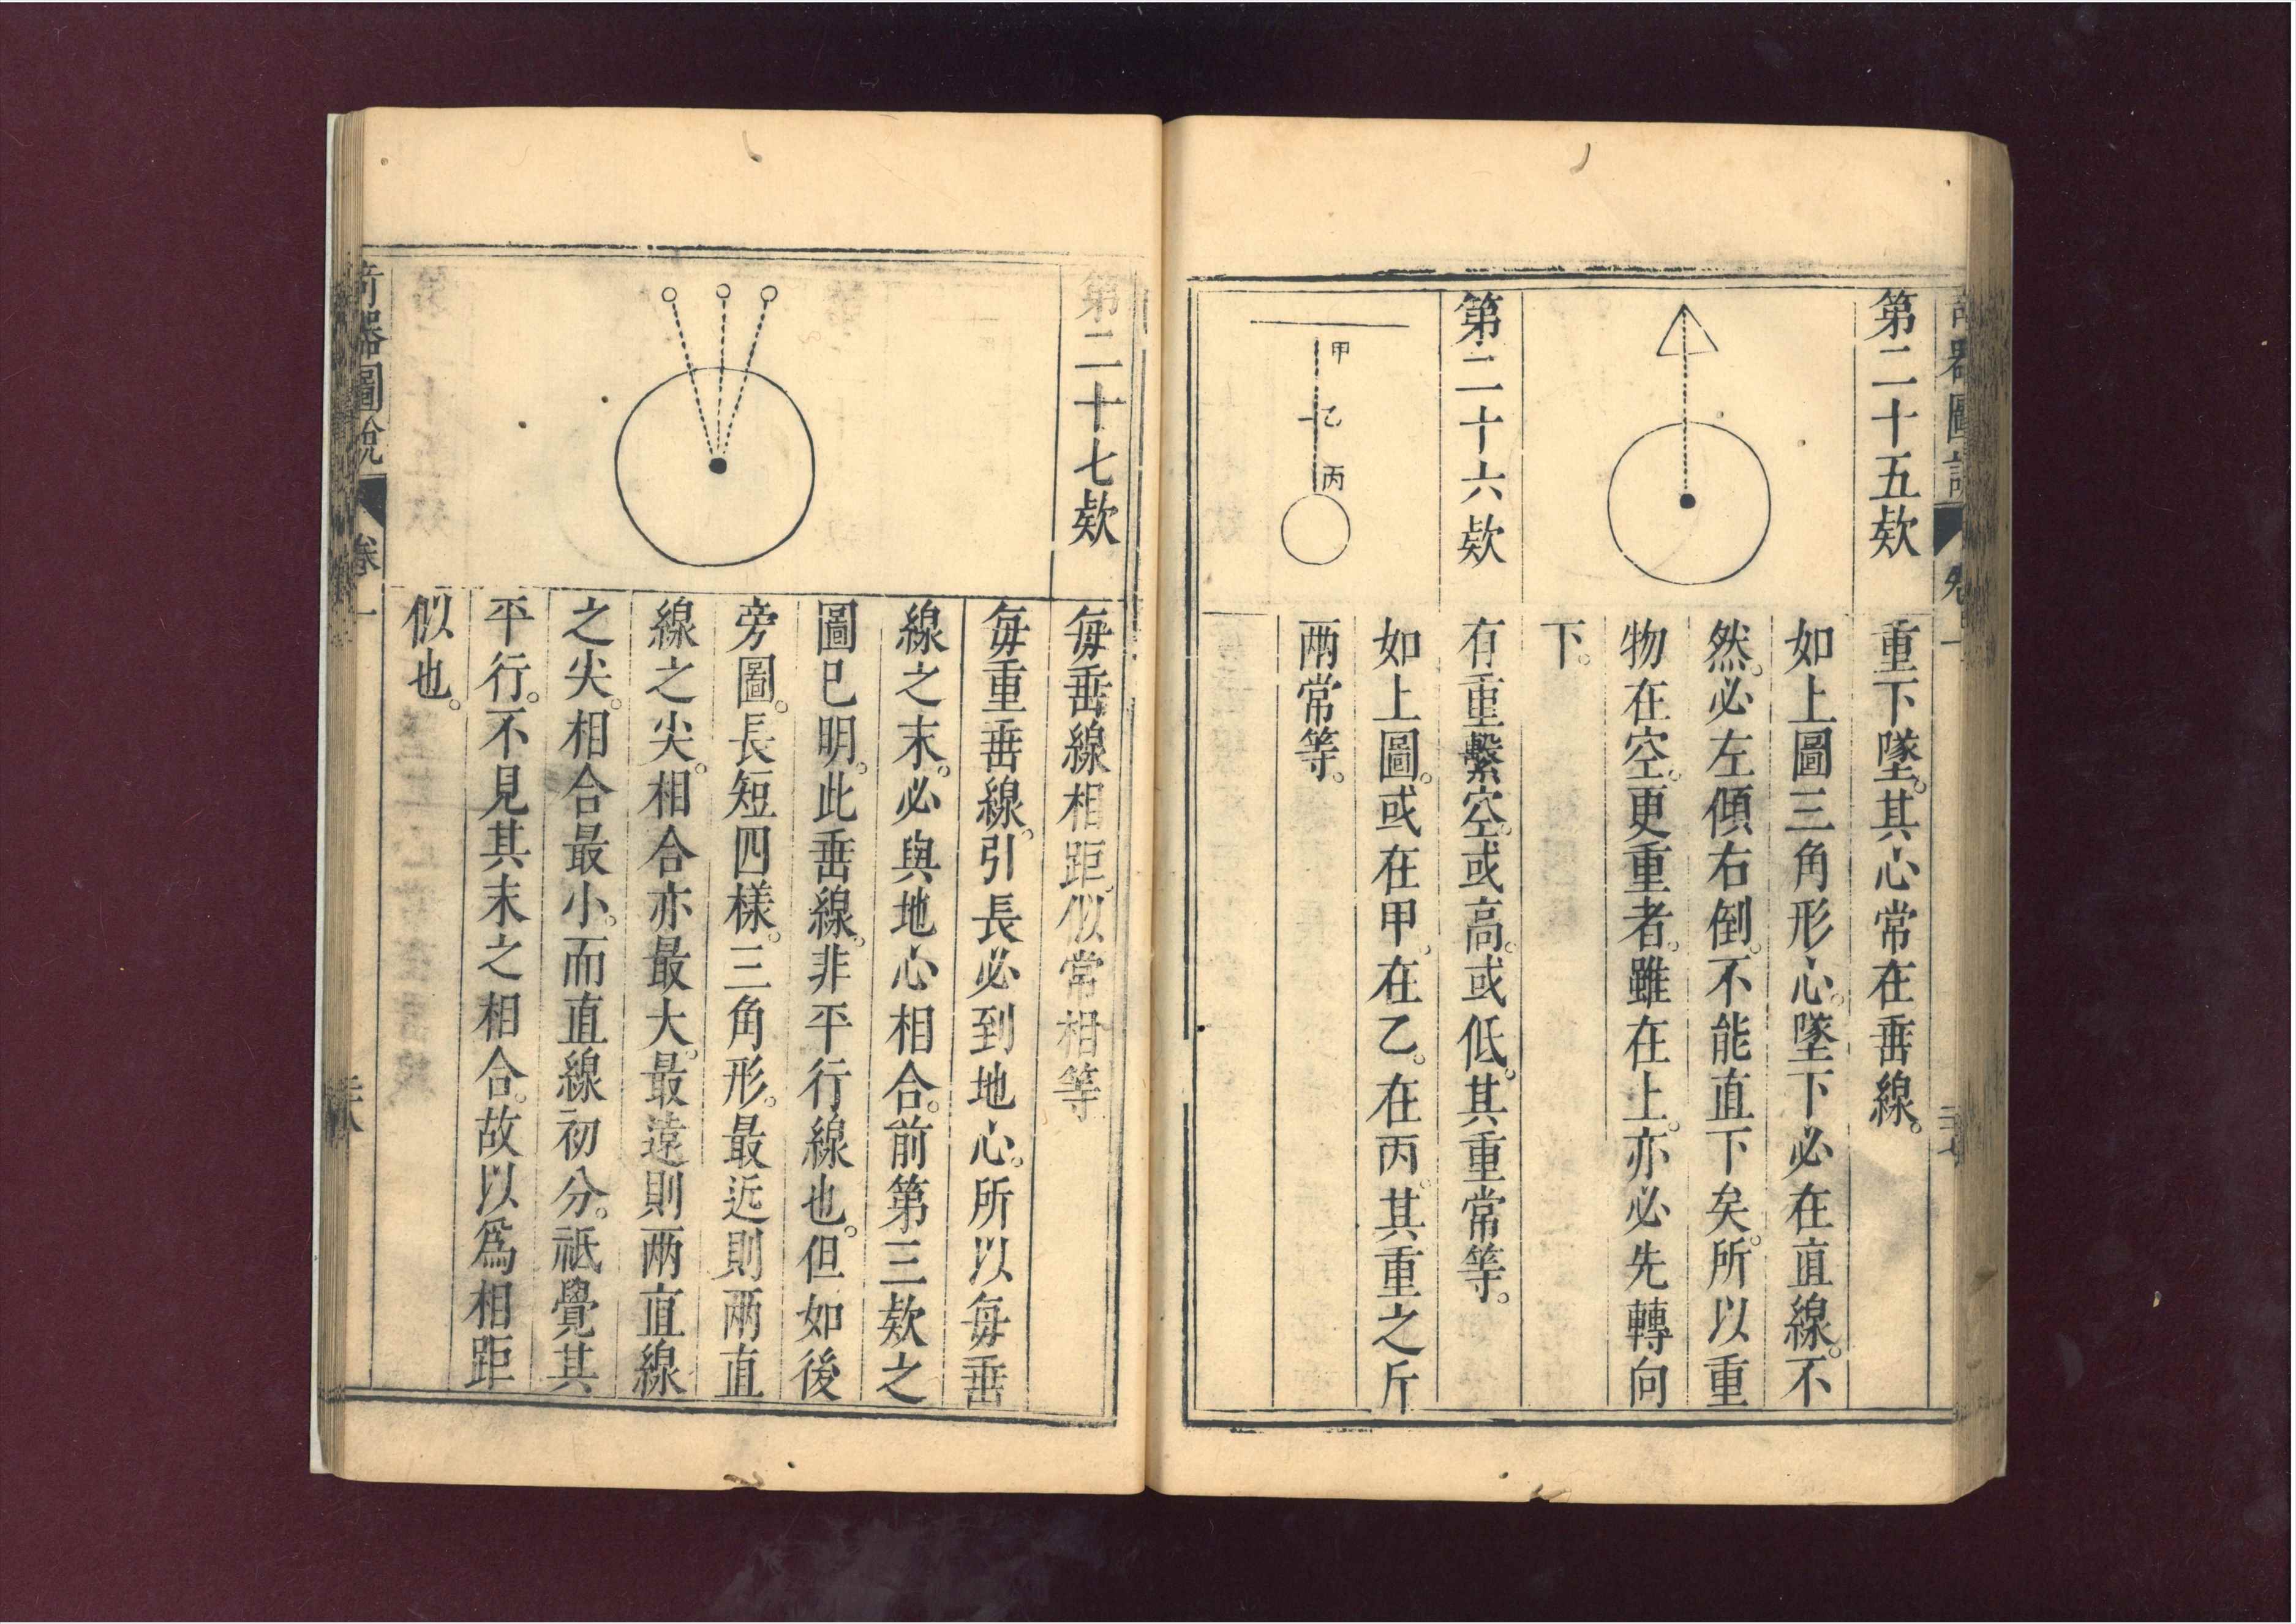 第二十五欵
重下墜。其心常在垂線。
如上圖三角形心。墜下必在直線。不
然。必左傾右倒。不能直下矣。所以重
物在空。更重者。雖在上。亦必先轉向
下。
第二十六欵
有重繫空。或高。或低。其重常等。
甲
乙
丙
如上圖。或在甲。在乙。在丙。其重之斤
兩常等。
第二十七欵
每垂線相距。似常相等
每重垂線。引長必到地心。所以每垂
線之末。必與地心相合。前第三欵之
圖已明。此垂線。非平行線也。但如後
旁圖。長短四樣。三角形。最近則兩直
線之尖。相合亦最大。最遠則兩直線
之尖。相合最小。而直線初分。祇覺其
平行。不見其末之相合。故以爲相距
似也。
奇器圖說
卷一